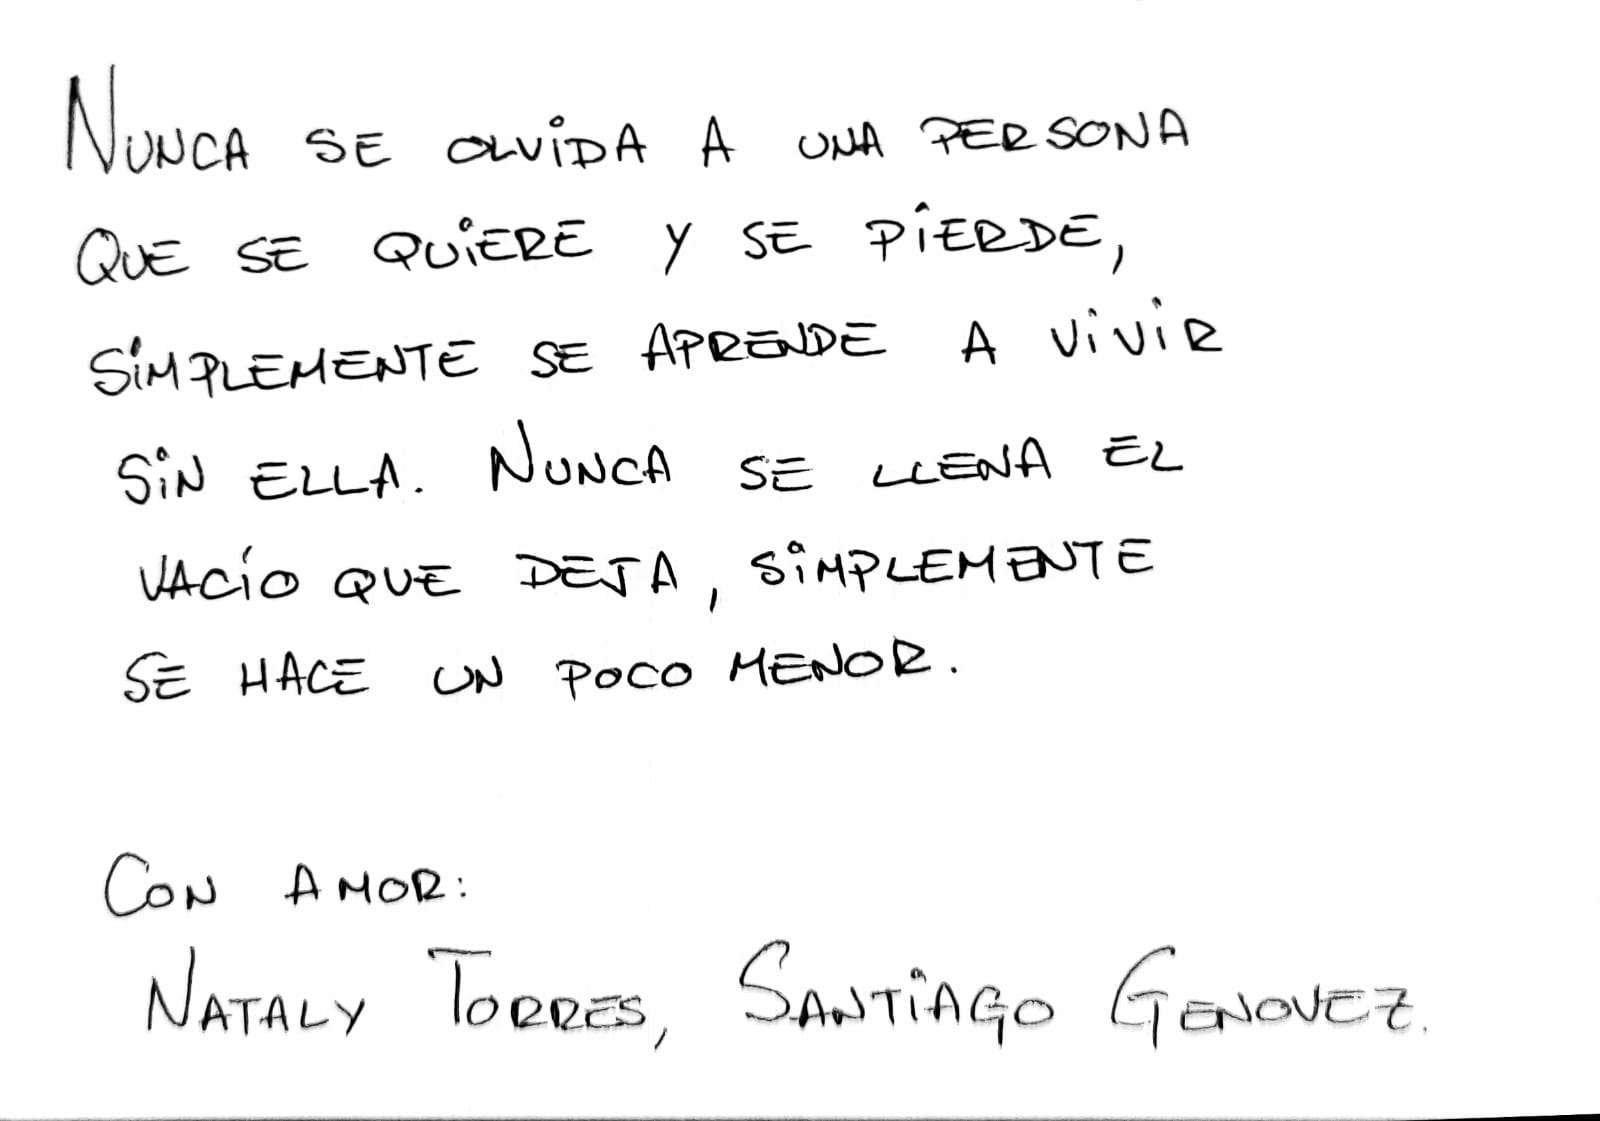 NUNCA SE OLViDA A UNA PERSONA
QUE SE QUiERE Y SE PiERDE,
SiMPLEMENTE SE APRENDE A ViViR
SiN ELLA. NUNCA SE LLENA EL
VACÍO QUE DEJA, SiMPLEMENTE
SE HACE UN POCO MENOR.
CON AMOR:
NATALY TORRES, SANTiAGO GENOVEZ.